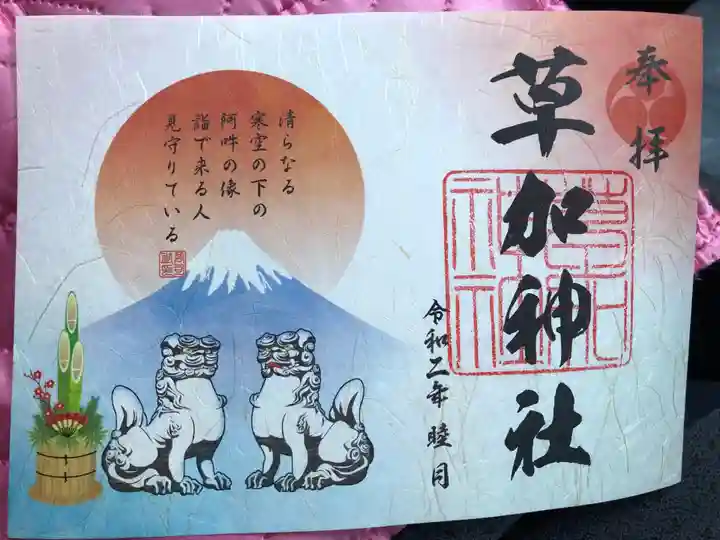 奉拝
草加神社
令和二年 睦月
清らなる
寒空の下の
阿吽の像
詣で来る人
見守りている
草加神社